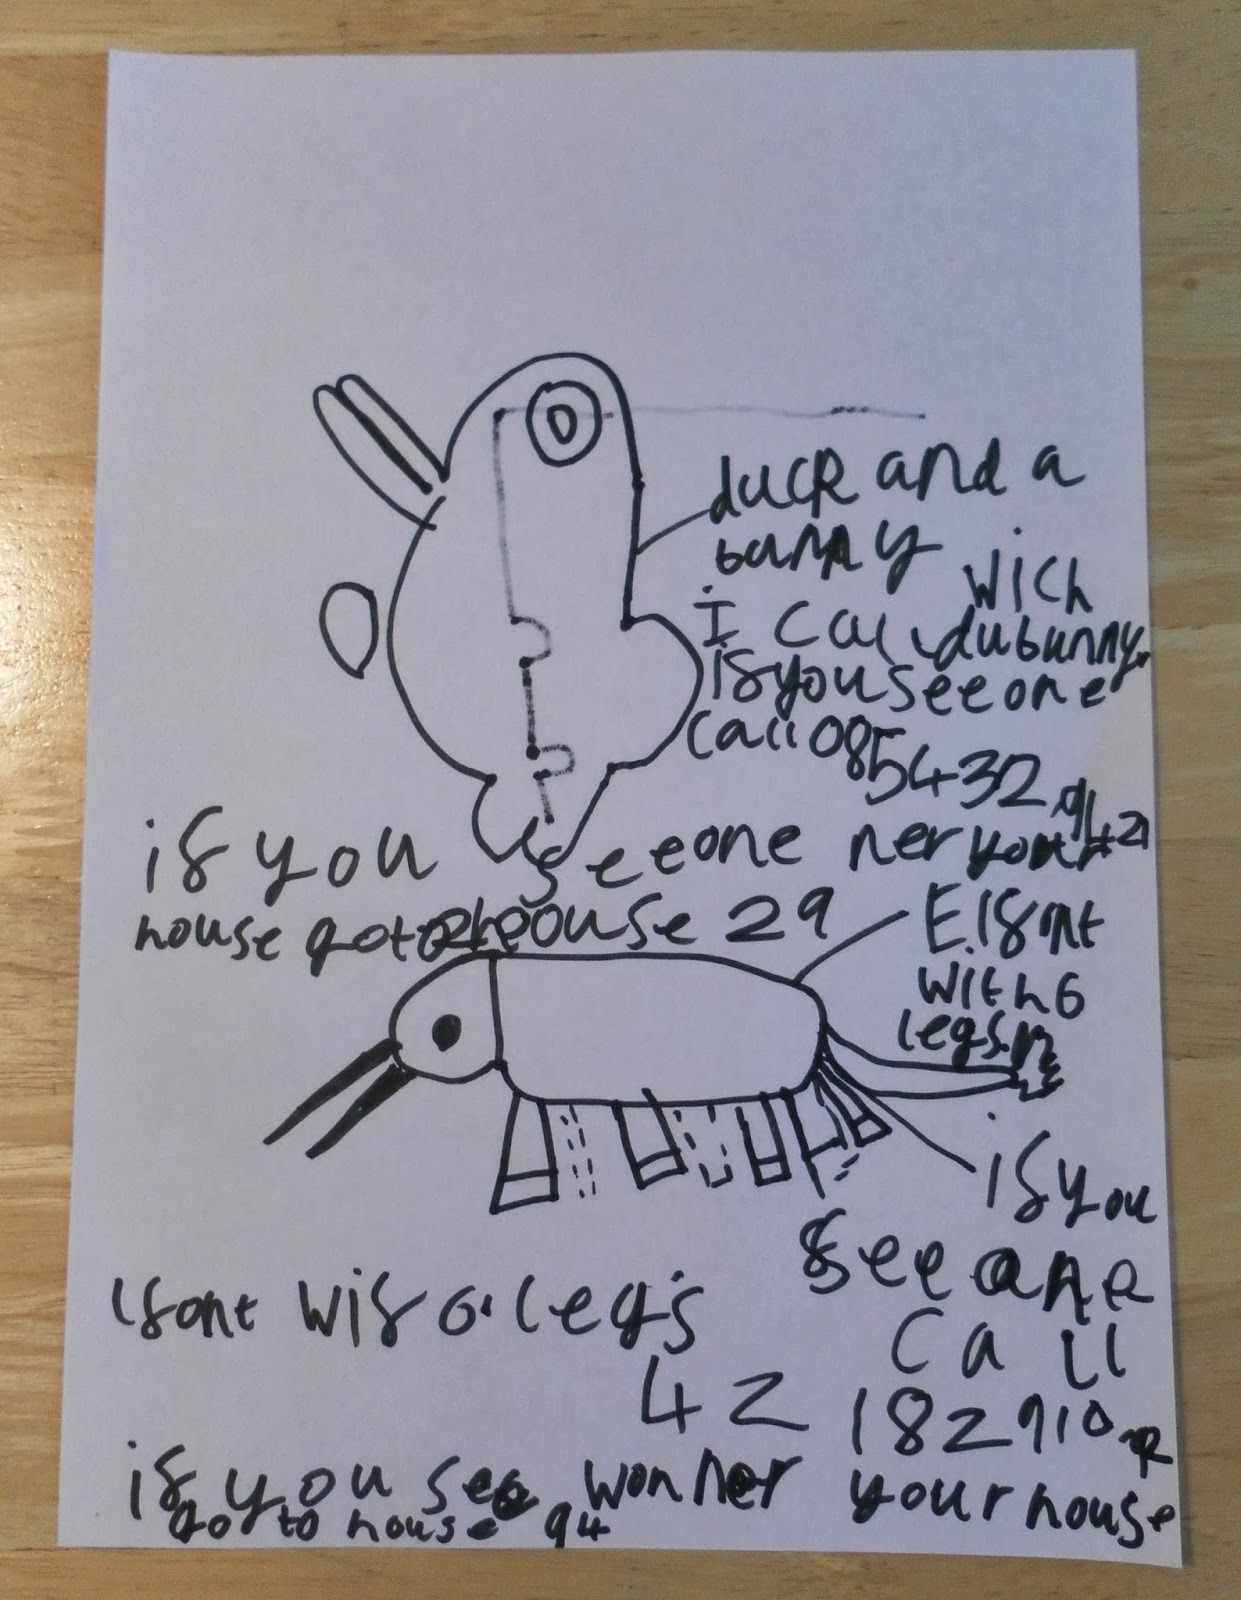 duck and a
bunny
wich
i call dubunny.
if you see one
call 085432
9421
if you see one ner your
house go to house 29
E.lfont
with 6
legs.
if you
see one
call
182910
lfont wif 6. legs
42
if you see won ner your house
go to house 94